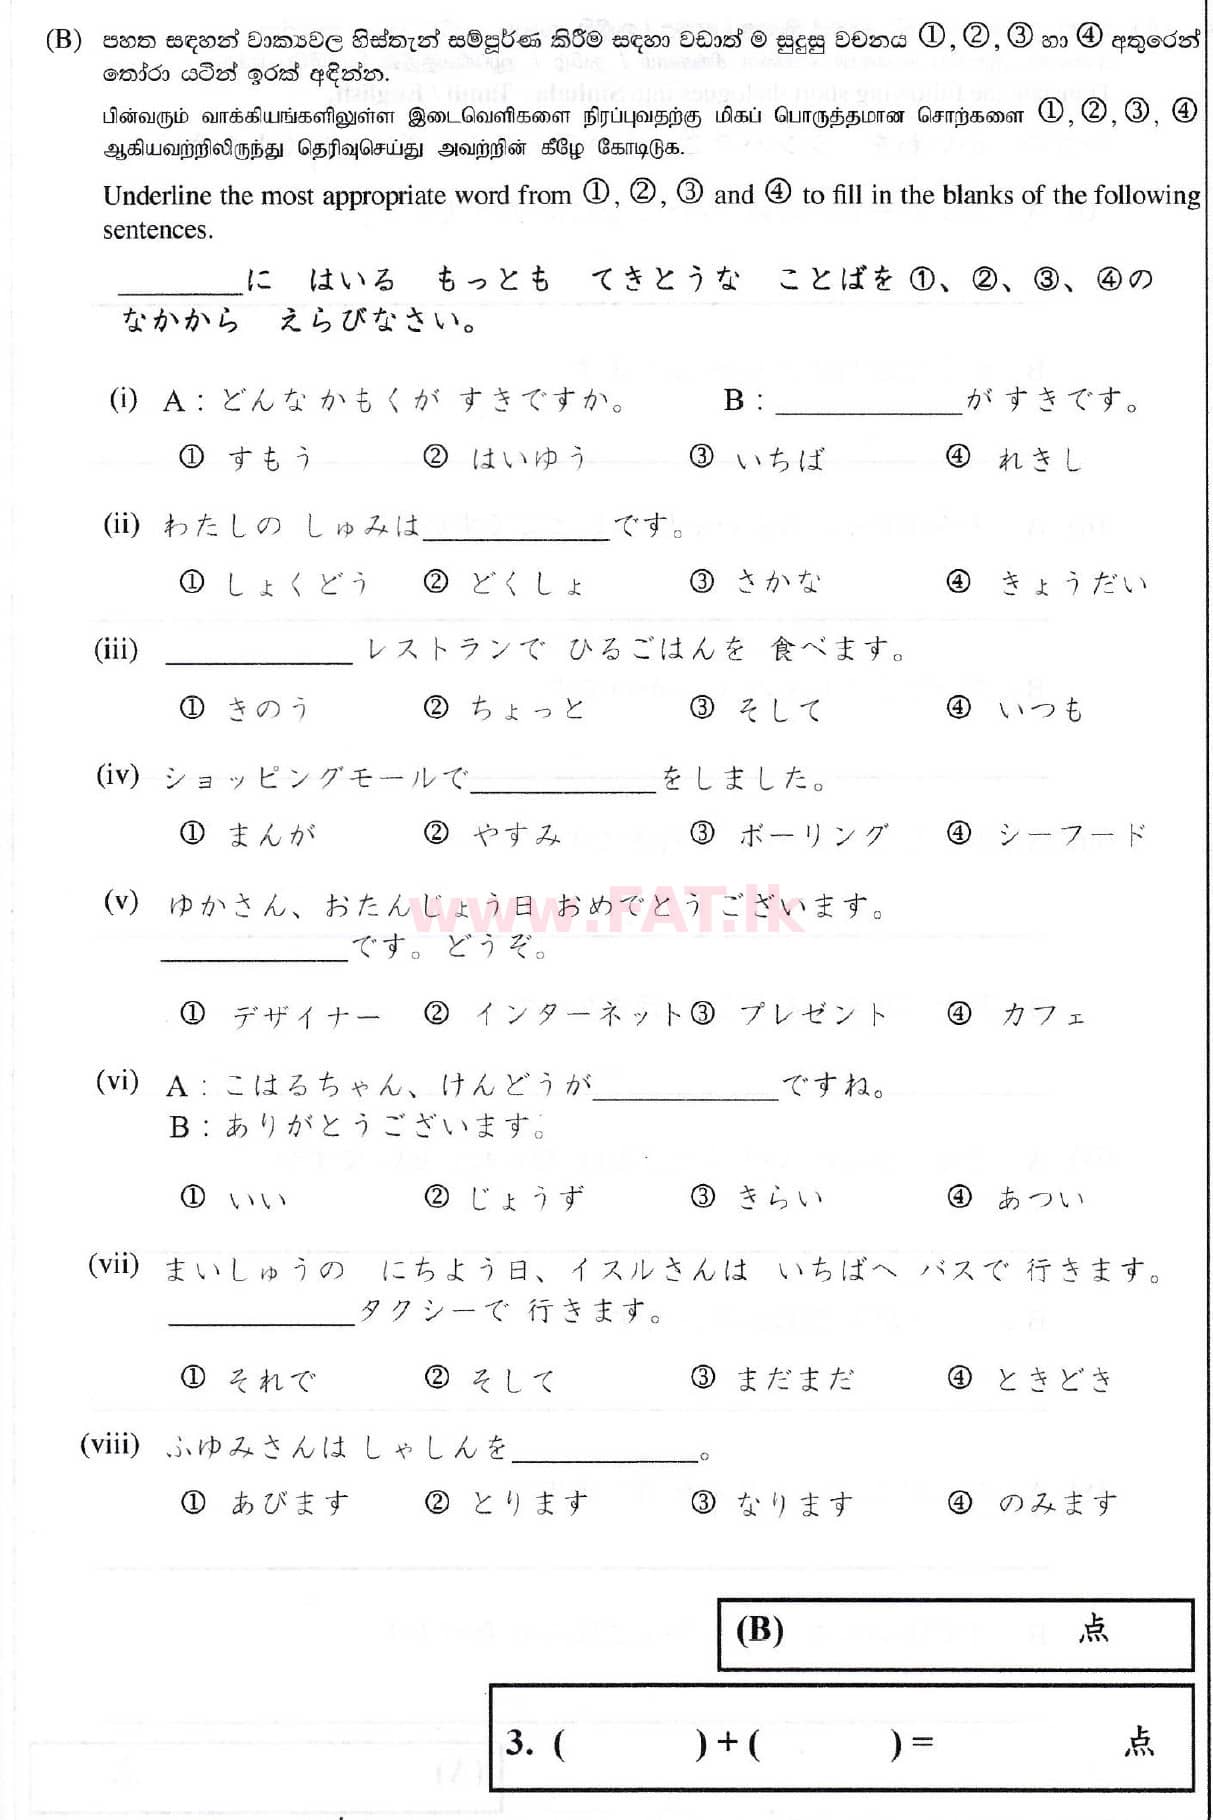 (B) පහත සඳහන් වාක්‍යවල හිස්තැන් සම්පූර්ණ කිරීම සඳහා වඩාත් ම සුදුසු වචනය ①, ②, ③ හා ④ අතුරෙන්
තෝරා යටින් ඉරක් අඳින්න.
பின்வரும் வாக்கியங்களிலுள்ள இடைவெளிகளை நிரப்புவதற்கு மிகப் பொருத்தமான சொற்களை ①, ②, ③, ④
ஆகியவற்றிலிருந்து தெரிவுசெய்து அவற்றின் கீழே கோடிடுக.
Underline the most appropriate word from ①, ②, ③ and ④ to fill in the blanks of the following
sentences.
________に はいる もっとも てきとうな ことばを ①、②、③、④の
なかから えらびなさい。
(i) A : どんな かもくが すきですか。 B : ____________が すきです。
① すもう ② はいゆう ③ いちば ④ れきし
(ii) わたしの しゅみは____________です。
① しょくどう ② どくしょ ③ さかな ④ きょうだい
(iii) ____________ レストランで ひるごはんを 食べます。
① きのう ② ちょっと ③ そして ④ いつも
(iv) ショッピングモールで____________をしました。
① まんが ② やすみ ③ ボーリング ④ シーフード
(v) ゆかさん、おたんじょう日 おめでとう ございます。
www.FAT.lk
____________です。どうぞ。
① デザイナー ② インターネット ③ プレゼント ④ カフェ
(vi) A : こはるちゃん、けんどうが____________ですね。
B : ありがとうございます。
① いい ② じょうず ③ きらい ④ あつい
(vii) まいしゅうの にちよう日、イスルさんは いちばへ バスで 行きます。
____________タクシーで 行きます。
① それで ② そして ③ まだまだ ④ ときどき
(viii) ふゆみさんは しゃしんを____________。
① あびます ② とります ③ なります ④ のみます
(B) 点
3. ( ) + ( ) = 点